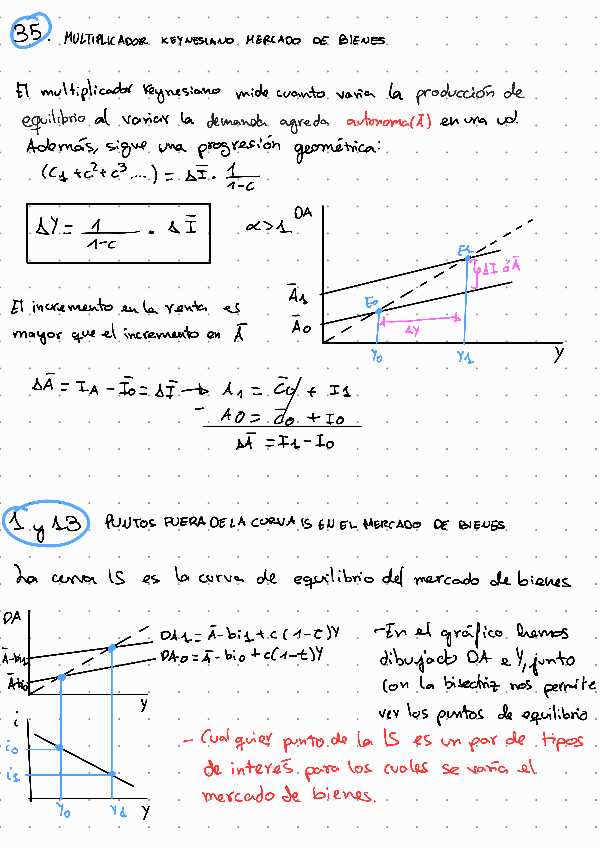 35. MULTIPLICADOR KEYNESIANO MERCADO DE BIENES
El multiplicador keynesiano mide cuanto varia la producción de
equilibrio al variar la demanda agreda autonoma (Ā) en una ud.
Además, sigue una progresión geométrica:
(C1 + c² + c³ ....) = ΔĪ · 1/1-c
ΔY = 1/1-c · ΔĪ
α>1
DA
E1
ΔI ó Ā
Ā1
E0
Ā0
ΔY
Y0
Y1
Y
El incremento en la renta es
mayor que el incremento en Ā
ΔĀ = IA - Ī0 = ΔĪ → A1 = C̄0 + I1
- A0 = C̄0 + I0
ΔĀ = I1 - I0
1 y 13 PUNTOS FUERA DE LA CURVA IS EN EL MERCADO DE BIENES
La curva IS es la curva de equilibrio del mercado de bienes
DA
DA1 = Ā - bi1 + c(1-t)Y
DA0 = Ā - bi0 + c(1-t)Y
Ā-bi1
Ā-bi0
Y
- En el gráfico hemos
dibujado DA e Y, junto
con la bisectriz nos permite
ver los puntos de equilibrio
i
i0
i1
Y0
Y1
Y
- Cualquier punto de la IS es un par de tipos
de interés para los cuales se varía el
mercado de bienes.